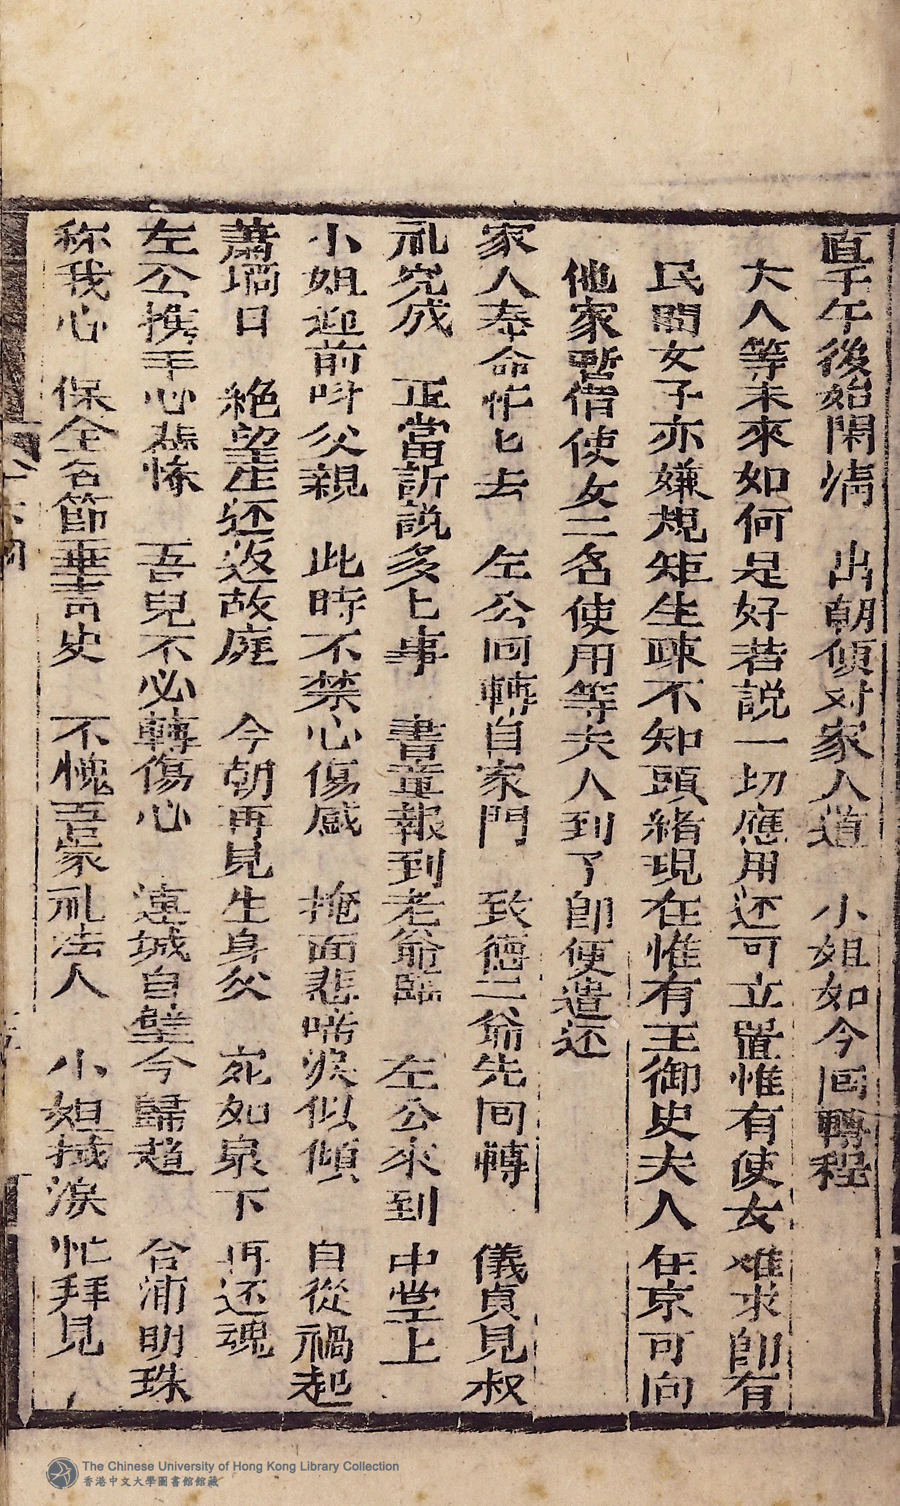 直乎午後始閑情　出朝傾对家人道　小姐如今回轉程
大人等未來如何是好若説一切應用还可立置惟有使女难求即有
民間女子亦嫌規矩生踈不知頭緒現在惟有王御史夫人在京可向
他家暫借使女二名使用等夫人到了即便遣还
家人奉命忙匕去　左公囬轉自家門　致德二爺先囬轉　儀貞見叔
礼完成　正當訴説多匕事　書童報到老爺臨　左公來到中堂上
小姐迎前呌父親　此時不禁心傷感　掩面悲啼淚似傾　自從禍起
蕭墻日　絶望生还返故庭　今朝再見生身父　宛如泉下再还魂
左公携手心悲悽　吾兒不必轉傷心　連城自璧今歸趙　合浦明珠
称我心　保全名節垂青史　不愧吾家礼法人　小姐拭淚忙拜見
The Chinese University of Hong Kong Library Collection
香港中文大學圖書館館藏